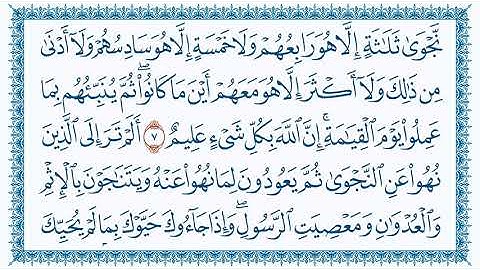 نَّجْوَىٰ ثَلَٰثَةٍ إِلَّا هُوَ رَابِعُهُمْ وَلَا خَمْسَةٍ إِلَّا هُوَ سَادِسُهُمْ وَلَآ أَدْنَىٰ
مِن ذَٰلِكَ وَلَآ أَكْثَرَ إِلَّا هُوَ مَعَهُمْ أَيْنَ مَا كَانُوا۟ ۖ ثُمَّ يُنَبِّئُهُم بِمَا
عَمِلُوا۟ يَوْمَ ٱلْقِيَٰمَةِ ۚ إِنَّ ٱللَّهَ بِكُلِّ شَىْءٍ عَلِيمٌ ٧ أَلَمْ تَرَ إِلَى ٱلَّذِينَ
نُهُوا۟ عَنِ ٱلنَّجْوَىٰ ثُمَّ يَعُودُونَ لِمَا نُهُوا۟ عَنْهُ وَيَتَنَٰجَوْنَ بِٱلْإِثْمِ
وَٱلْعُدْوَٰنِ وَمَعْصِيَتِ ٱلرَّسُولِ ۖ وَإِذَا جَآءُوكَ حَيَّوْكَ بِمَا لَمْ يُحَيِّكَ